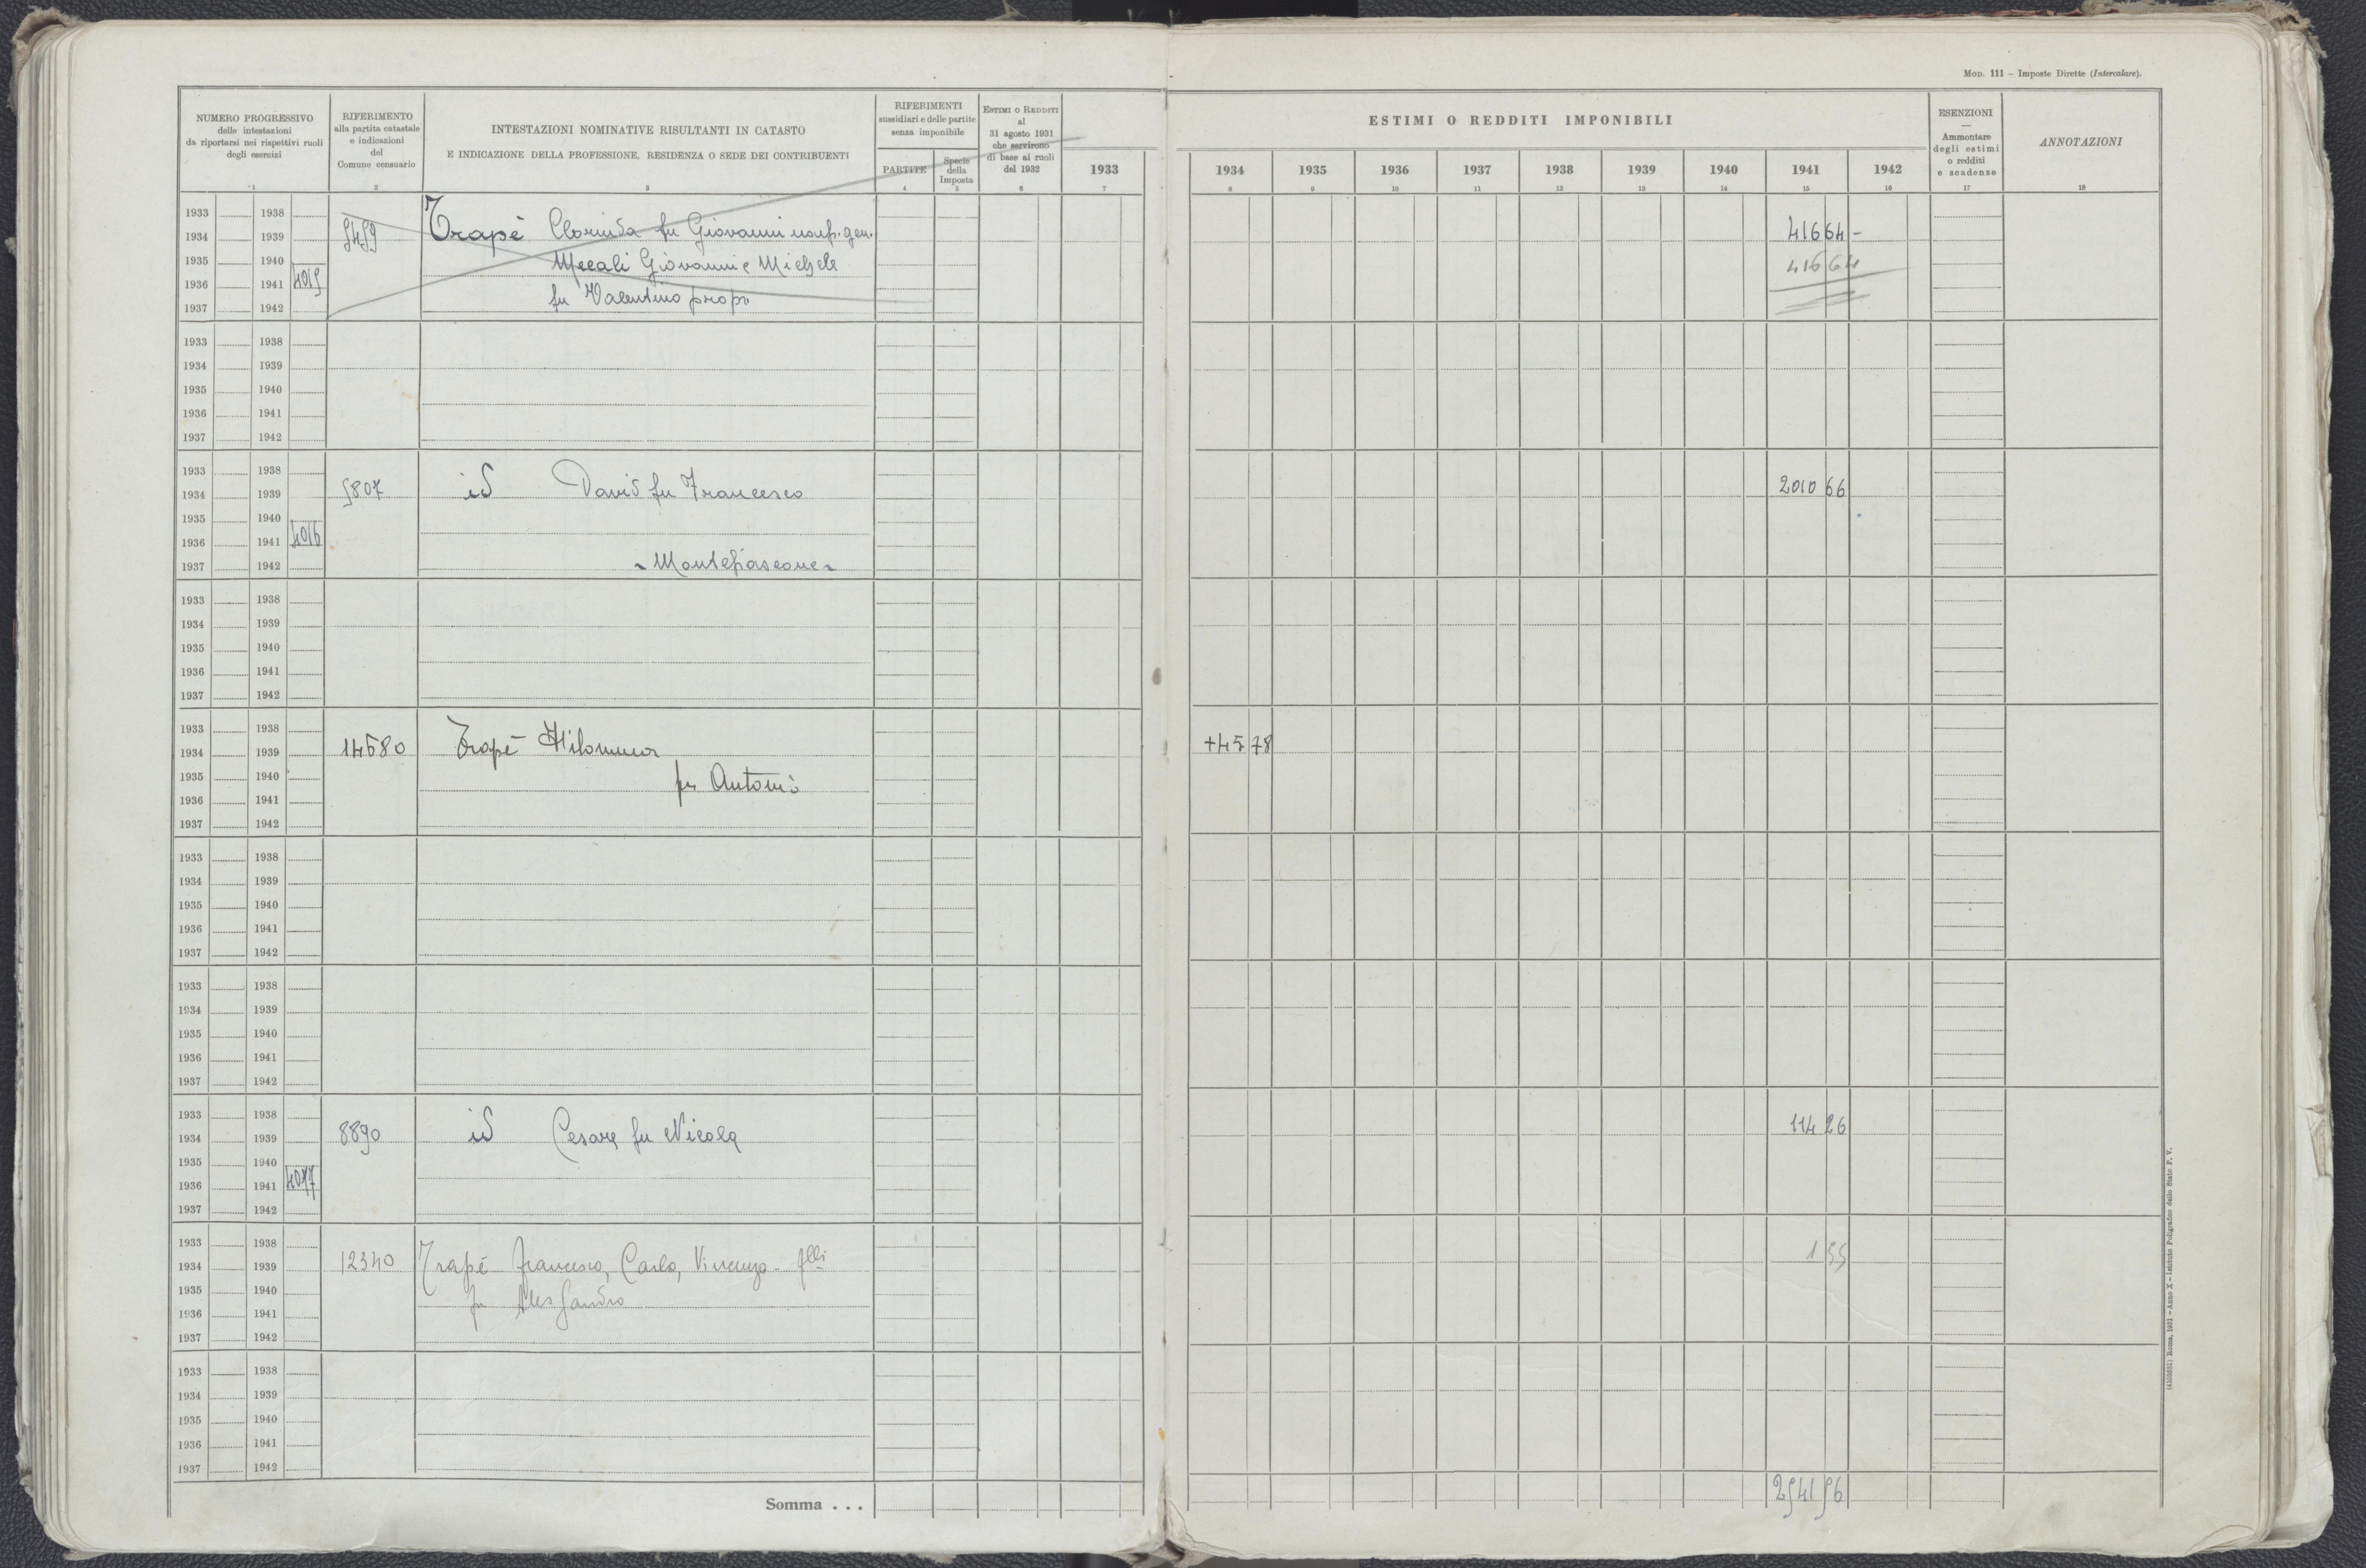 MOD. 111 – Imposte Dirette (Intercalare).
NUMERO PROGRESSIVO
delle intestazioni
da riportarsi nei rispettivi ruoli
degli esercizi
1
RIFERIMENTO
alla partita catastale
e indicazioni
del
Comune censuario
2
INTESTAZIONI NOMINATIVE RISULTANTI IN CATASTO
E INDICAZIONE DELLA PROFESSIONE, RESIDENZA O SEDE DEI CONTRIBUENTI
3
RIFERIMENTI
sussidiari e delle partite
senza imponibile
PARTITE
4
Specie
della
Imposta
5
ESTIMI O REDDITI
al
31 agosto 1931
che servirono
di base ai ruoli
del 1932
6
ESTIMI O REDDITI IMPONIBILI
1933 1934 1935 1936 1937 1938 1939 1940 1941 1942
7 8 9 10 11 12 13 14 15 16
ESENZIONI
—
Ammontare
degli estimi
o redditi
e scadenze
17
ANNOTAZIONI
18
1933 1938
1934 1939 5459 Trapè Clorinda fu Giovanni usuf. gen. 416 64 –
1935 1940 Mecali Giovanni e Michele 416 64
1936 1941 4015
1937 1942 fu Valentino propr.
1933 1938
1934 1939
1935 1940
1936 1941
1937 1942
1933 1938
1934 1939 5807 id David fu Francesco 2010 66
1935 1940
1936 1941 4016
1937 1942 Montefiascone
1933 1938
1934 1939
1935 1940
1936 1941
1937 1942
1933 1938
1934 1939 14580 Trapè Filomena +45 78
1935 1940 fu Antonio
1936 1941
1937 1942
1933 1938
1934 1939
1935 1940
1936 1941
1937 1942
1933 1938
1934 1939
1935 1940
1936 1941
1937 1942
1933 1938
1934 1939 8890 id Cesare fu Nicola 114 26
1935 1940
1936 1941 4017
1937 1942
1933 1938
1934 1939 12340 Trapè Francesco, Carlo, Vincenzo flli 1 55
1935 1940 fu Alessandro
1936 1941
1937 1942
1933 1938
1934 1939
1935 1940
1936 1941
1937 1942
Somma . . . 2541 56
Roma, 1931 – Anno X – Istituto Poligrafico dello Stato P. V.